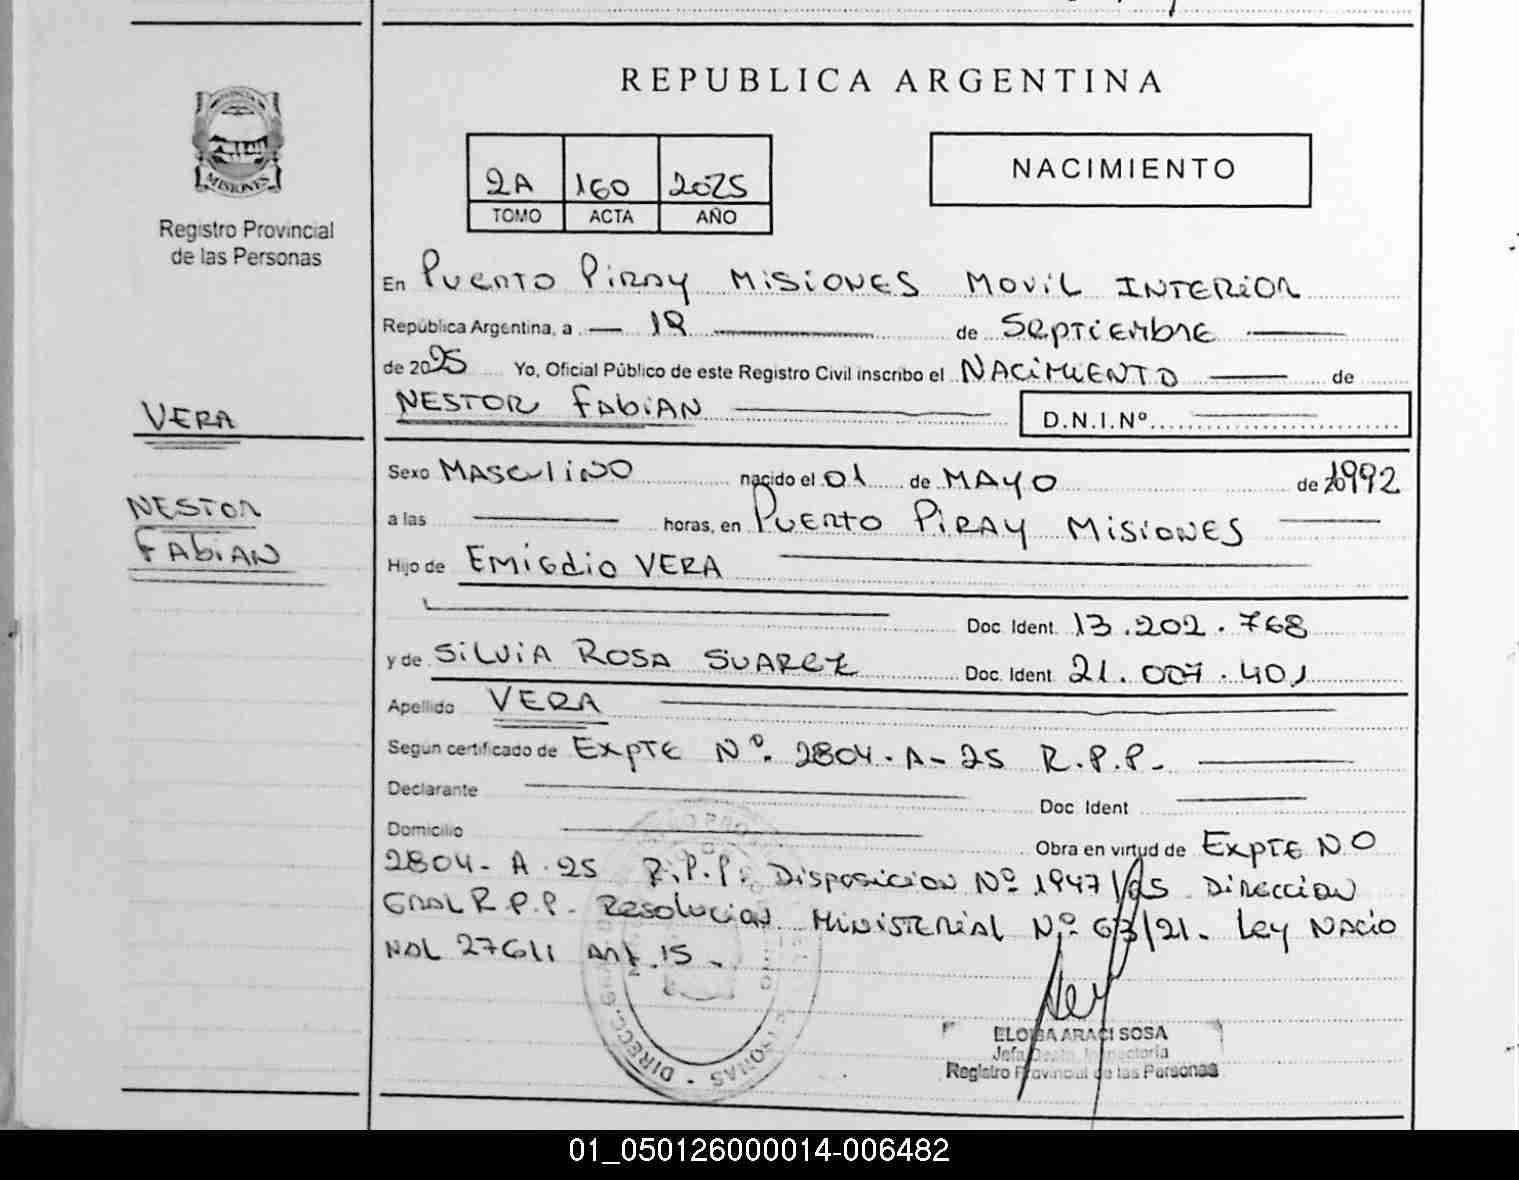 REPUBLICA ARGENTINA
MISIONES
Registro Provincial
de las Personas
2A 160 2025
TOMO ACTA AÑO
NACIMIENTO
En Puerto Piray Misiones Movil Interior
República Argentina, a 18 de Septiembre
de 2025 Yo, Oficial Público de este Registro Civil inscribo el NACIMIENTO de
NESTOR FABIAN D.N.I.Nº
VERA
NESTOR
FABIAN
Sexo MASCULINO nacido el 01 de MAYO de 1992
a las horas, en Puerto Piray Misiones
Hijo de Emigdio VERA
Doc. Ident. 13.202.768
y de Silvia Rosa Suarez Doc. Ident. 21.007.401
Apellido VERA
Según certificado de Expte Nº 2804-A-25 R.P.P.
Declarante Doc. Ident
Domicilio
Obra en virtud de Expte NO
2804-A-25 R.P.P. Disposicion Nº 1947/25 Direccion
Gral R.P.P. Resolucion Ministerial Nº 63/21. Ley Nacio
nal 27611 Art. 15
ELOISA ARACI SOSA
Registro Provincial de las Personas
01_050126000014-006482